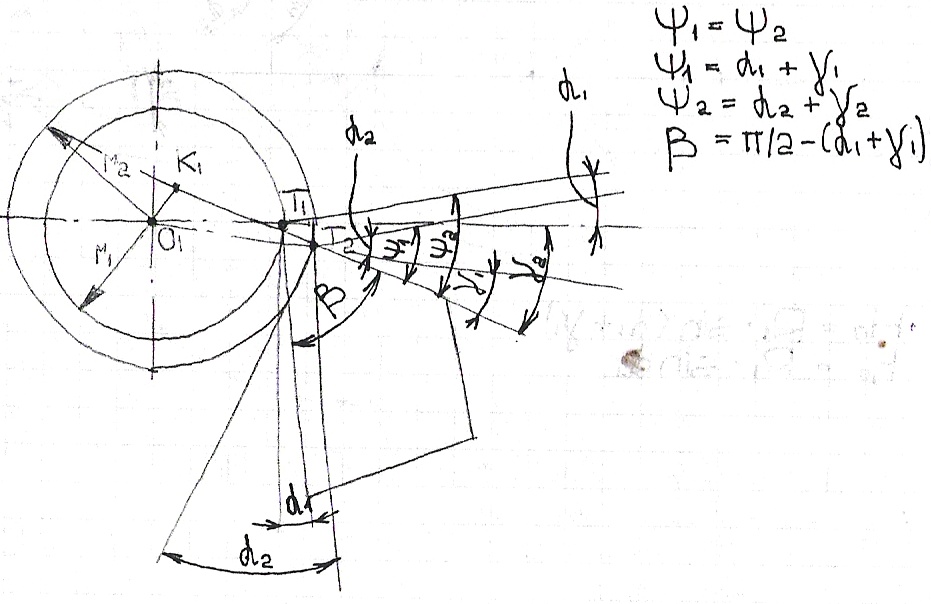 Ψ₁ = Ψ₂
Ψ₁ = α₁ + γ₁
Ψ₂ = α₂ + γ₂
β = π/2 - (α₁ + γ₁)
α₁
α₂
r₂
K₁
T₁
O₁
T₂
r₁
Ψ₁
Ψ₂
γ₁
γ₂
β
α₁
α₂